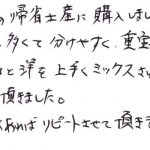 の帰省土産に購入しまし
多くて分けやすく、重宝
と洋を上手くミックスさ
頂きました。
あればリピートさせて頂き